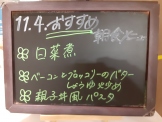 11.4. おすすめ
白菜煮
ベーコンとブロッコリーのバター
しょうゆ炒め
親子丼風パスタ